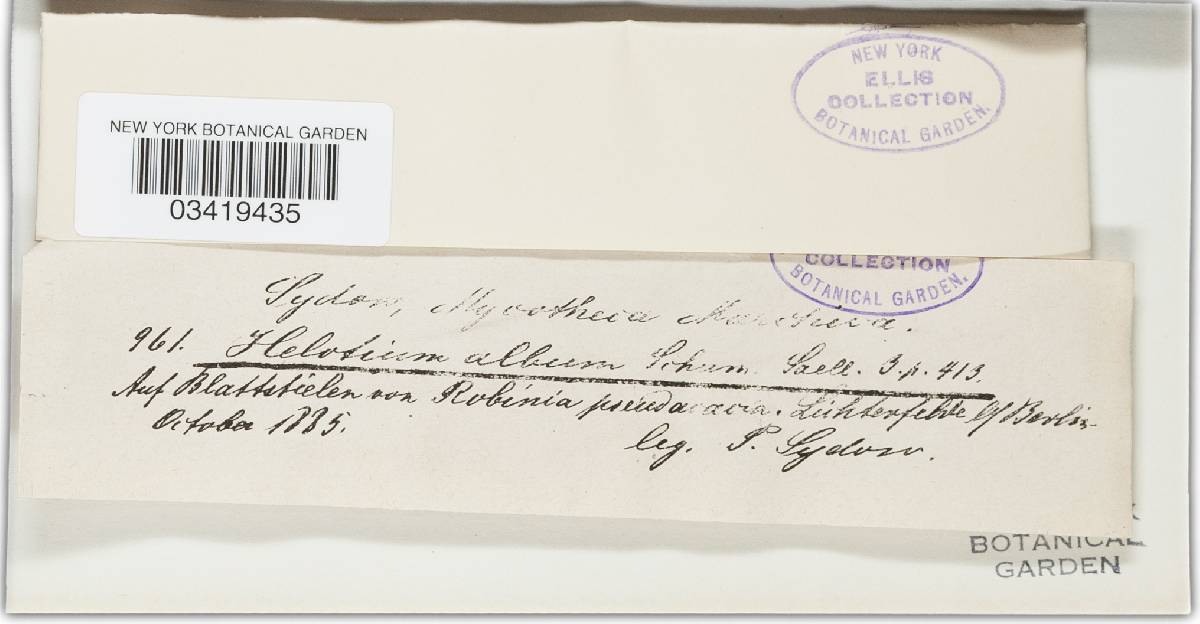 NEW YORK
ELLIS
COLLECTION
BOTANICAL GARDEN.
NEW YORK BOTANICAL GARDEN
03419435
COLLECTION
BOTANICAL GARDEN.
Sydow, Mycotheca Marchica.
961. Helotium album Schum. Sacc. 3. p. 413.
Auf Blattstielen von Robinia pseudacacia. Lichterfelde b/Berlin
October 1885.
leg. P. Sydow.
BOTANICAL
GARDEN